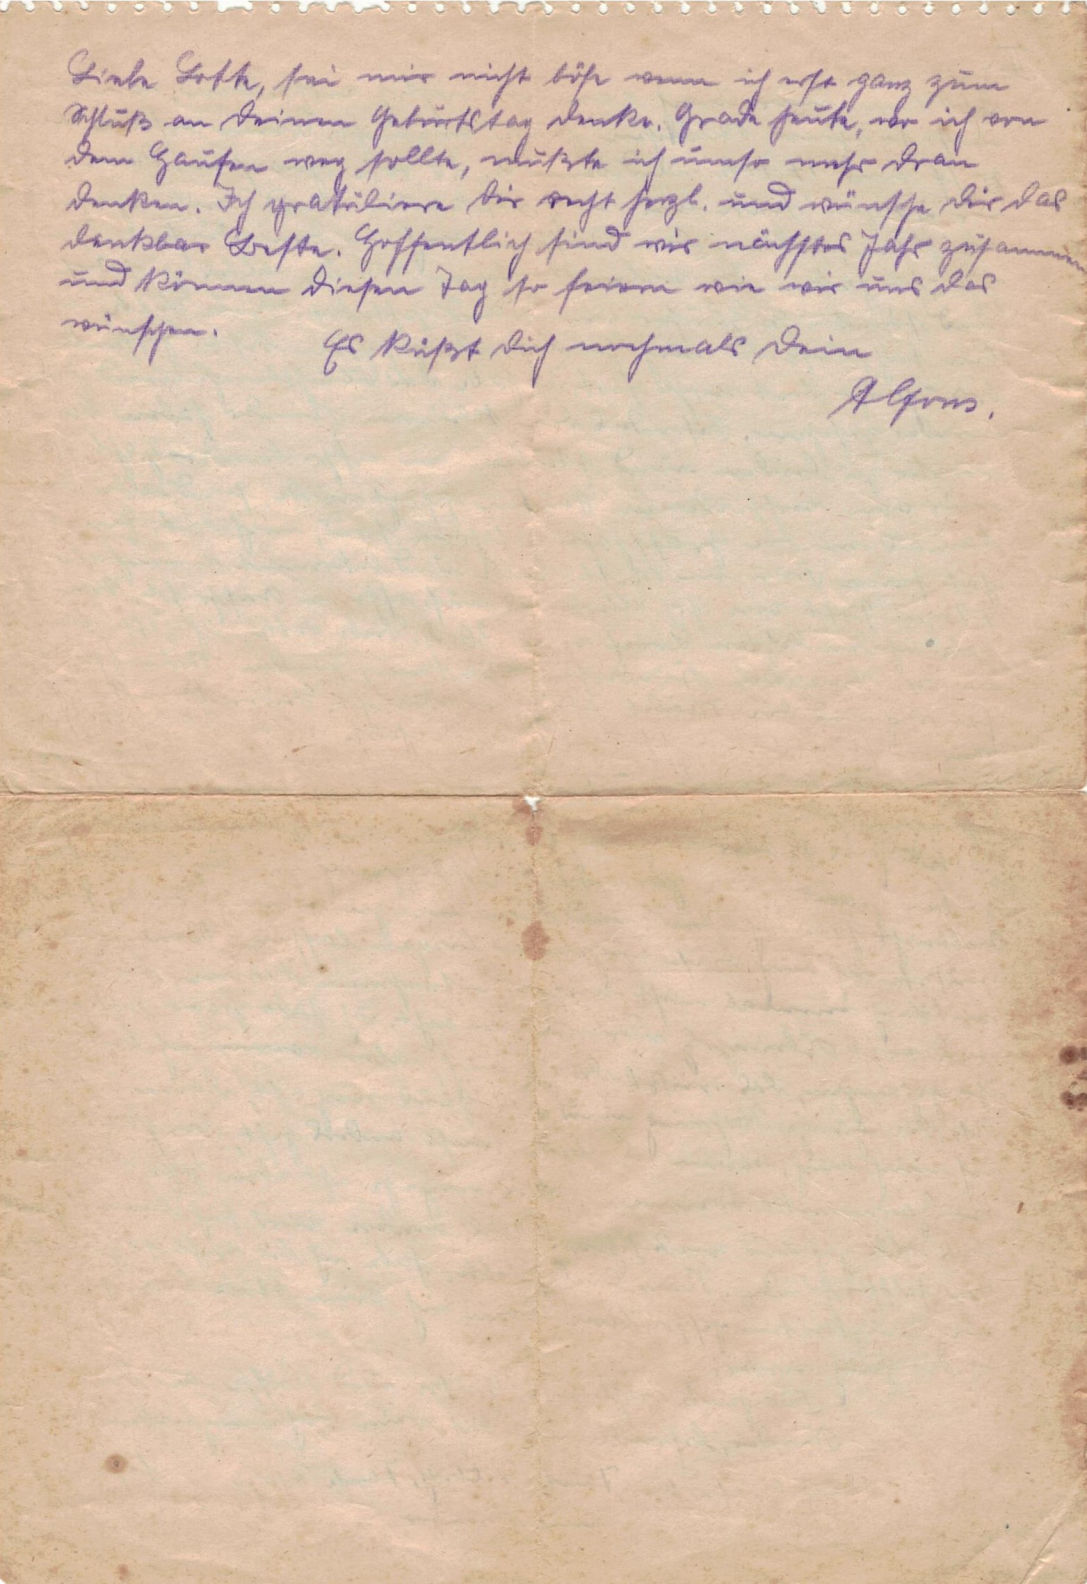 Liebe Lotte, sei mir nicht böse wenn ich erst ganz zum
Schluß an Deinen Geburtstag denke. Grade heute, wo ich von
dem Haufen weg sollte, mußte ich umso mehr dran
denken. Ich gratuliere Dir recht herzl. und wünsche Dir das
denkbar Beste. Hoffentlich sind wir nächstes Jahr zusammen
und können diesen Tag so feiern wie wir uns das
wünschen.
Es küßt Dich nochmals Dein
Alfons.